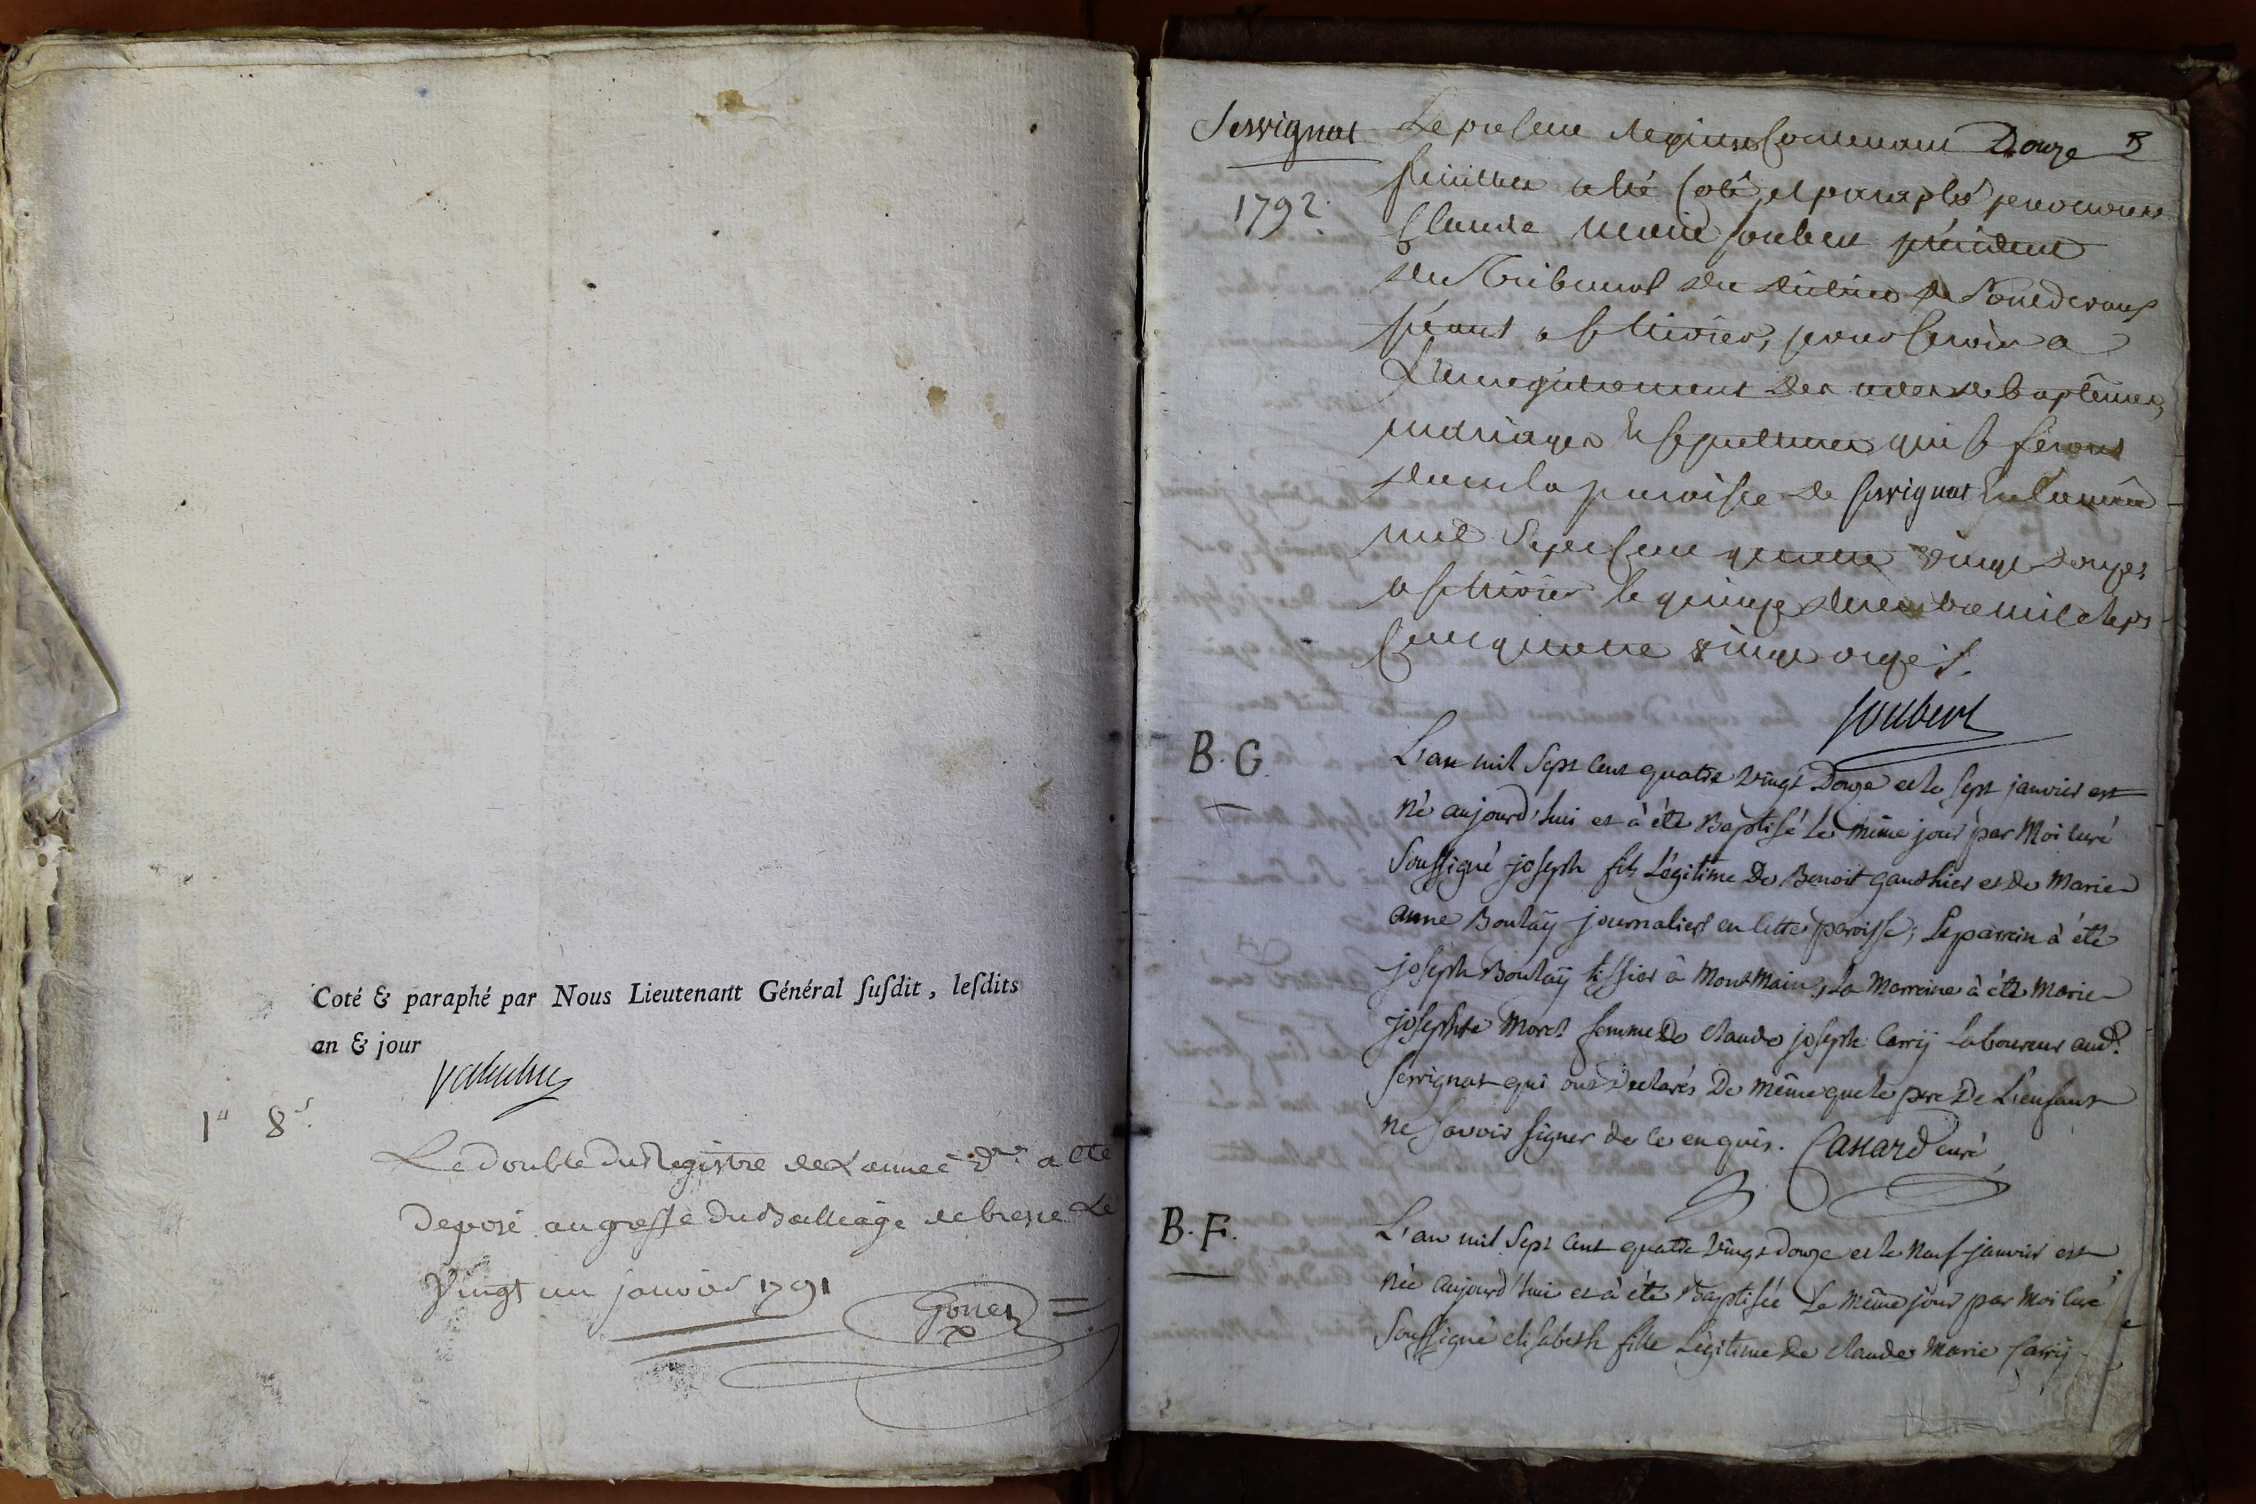 Coté & paraphé par Nous Lieutenant Général ſuſdit, leſdits
an & jour
1ᵉʳ 8ᵉ
Le double du Registre de L'année dre a eté
Deposé au greffe du Bailliage de bresse Le
Vingt un janvier 1791
Servignat
1792
Le present Registre Contenant Douze
feuilles a été Coté et paraphé par nous
Claude Marie Joubert président
du Tribunal du district de Pontdevaux
séant a St Trivier, pour servir a
L'enregistrement des actes de baptêmes,
mariages et sepultures qui se feront
dans la paroisse de servignat En l'année
mil Sept Cent quatre vingt douze,
a St Trivier le quinze decembre mil sept
Cent quatre vingt onze.
Joubert
B. G.
L'an mil Sept Cent quatre vingt Douze et le Sept janvier est
Né aujourd'hui et à été Baptisé Le même jour par Moi Curé
Soussigné joseph fils Légitime De Benoit gauthier et De Marie
anne Boulaÿ journalier en cette paroisse; Le parrein à été
joseph Boulaÿ tissier à Montmain, La Marreine à été Marie
josephte Morel femme De Claude joseph Carrÿ Laboureur aud.
Servignat qui ont Declarés De même que le pere De L'enfant
Ne savoir signer de ce enquis. Cassard curé
B. F.
L'an mil Sept Cent quatre vingt douze et le Neuf janvier est
Née aujourd'hui et à été Baptisée Le même jour par Moi Curé
Soussigné elisabeth fille Légitime De Claude Marie Carrÿ